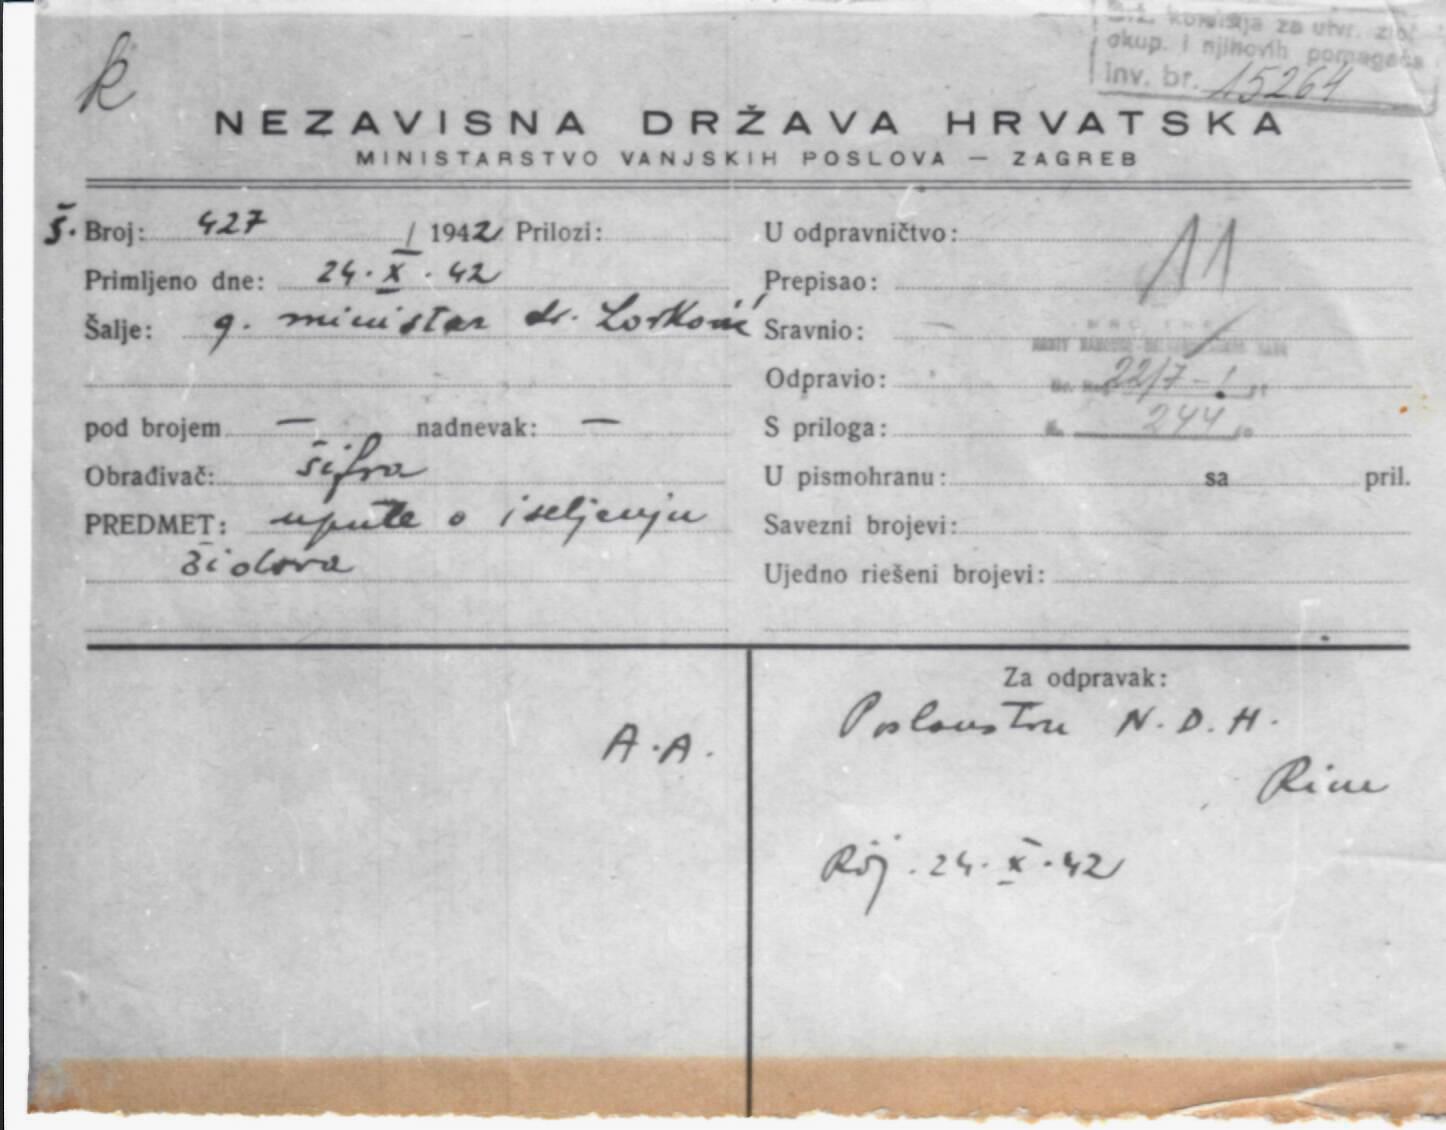 k
Drž. komisija za utvr. zloč.
okup. i njihovih pomagača
Inv. br. 15264
NEZAVISNA DRŽAVA HRVATSKA
MINISTARSTVO VANJSKIH POSLOVA — ZAGREB
Š. Broj: 427 / 1942 Prilozi:
Primljeno dne: 24. X. 42
Šalje: g. ministar dr. Lorković
pod brojem — nadnevak: —
Obrađivač: šifra
PREDMET: upute o iseljenju
židova
U odpravničtvo:
11
Prepisao:
Sravnio:
Odpravio:
22/7-1
S priloga:
244
U pismohranu: sa pril.
Savezni brojevi:
Ujedno riešeni brojevi:
A.A.
Za odpravak:
Poslanstvu N.D.H.
Rim
24. X. 42